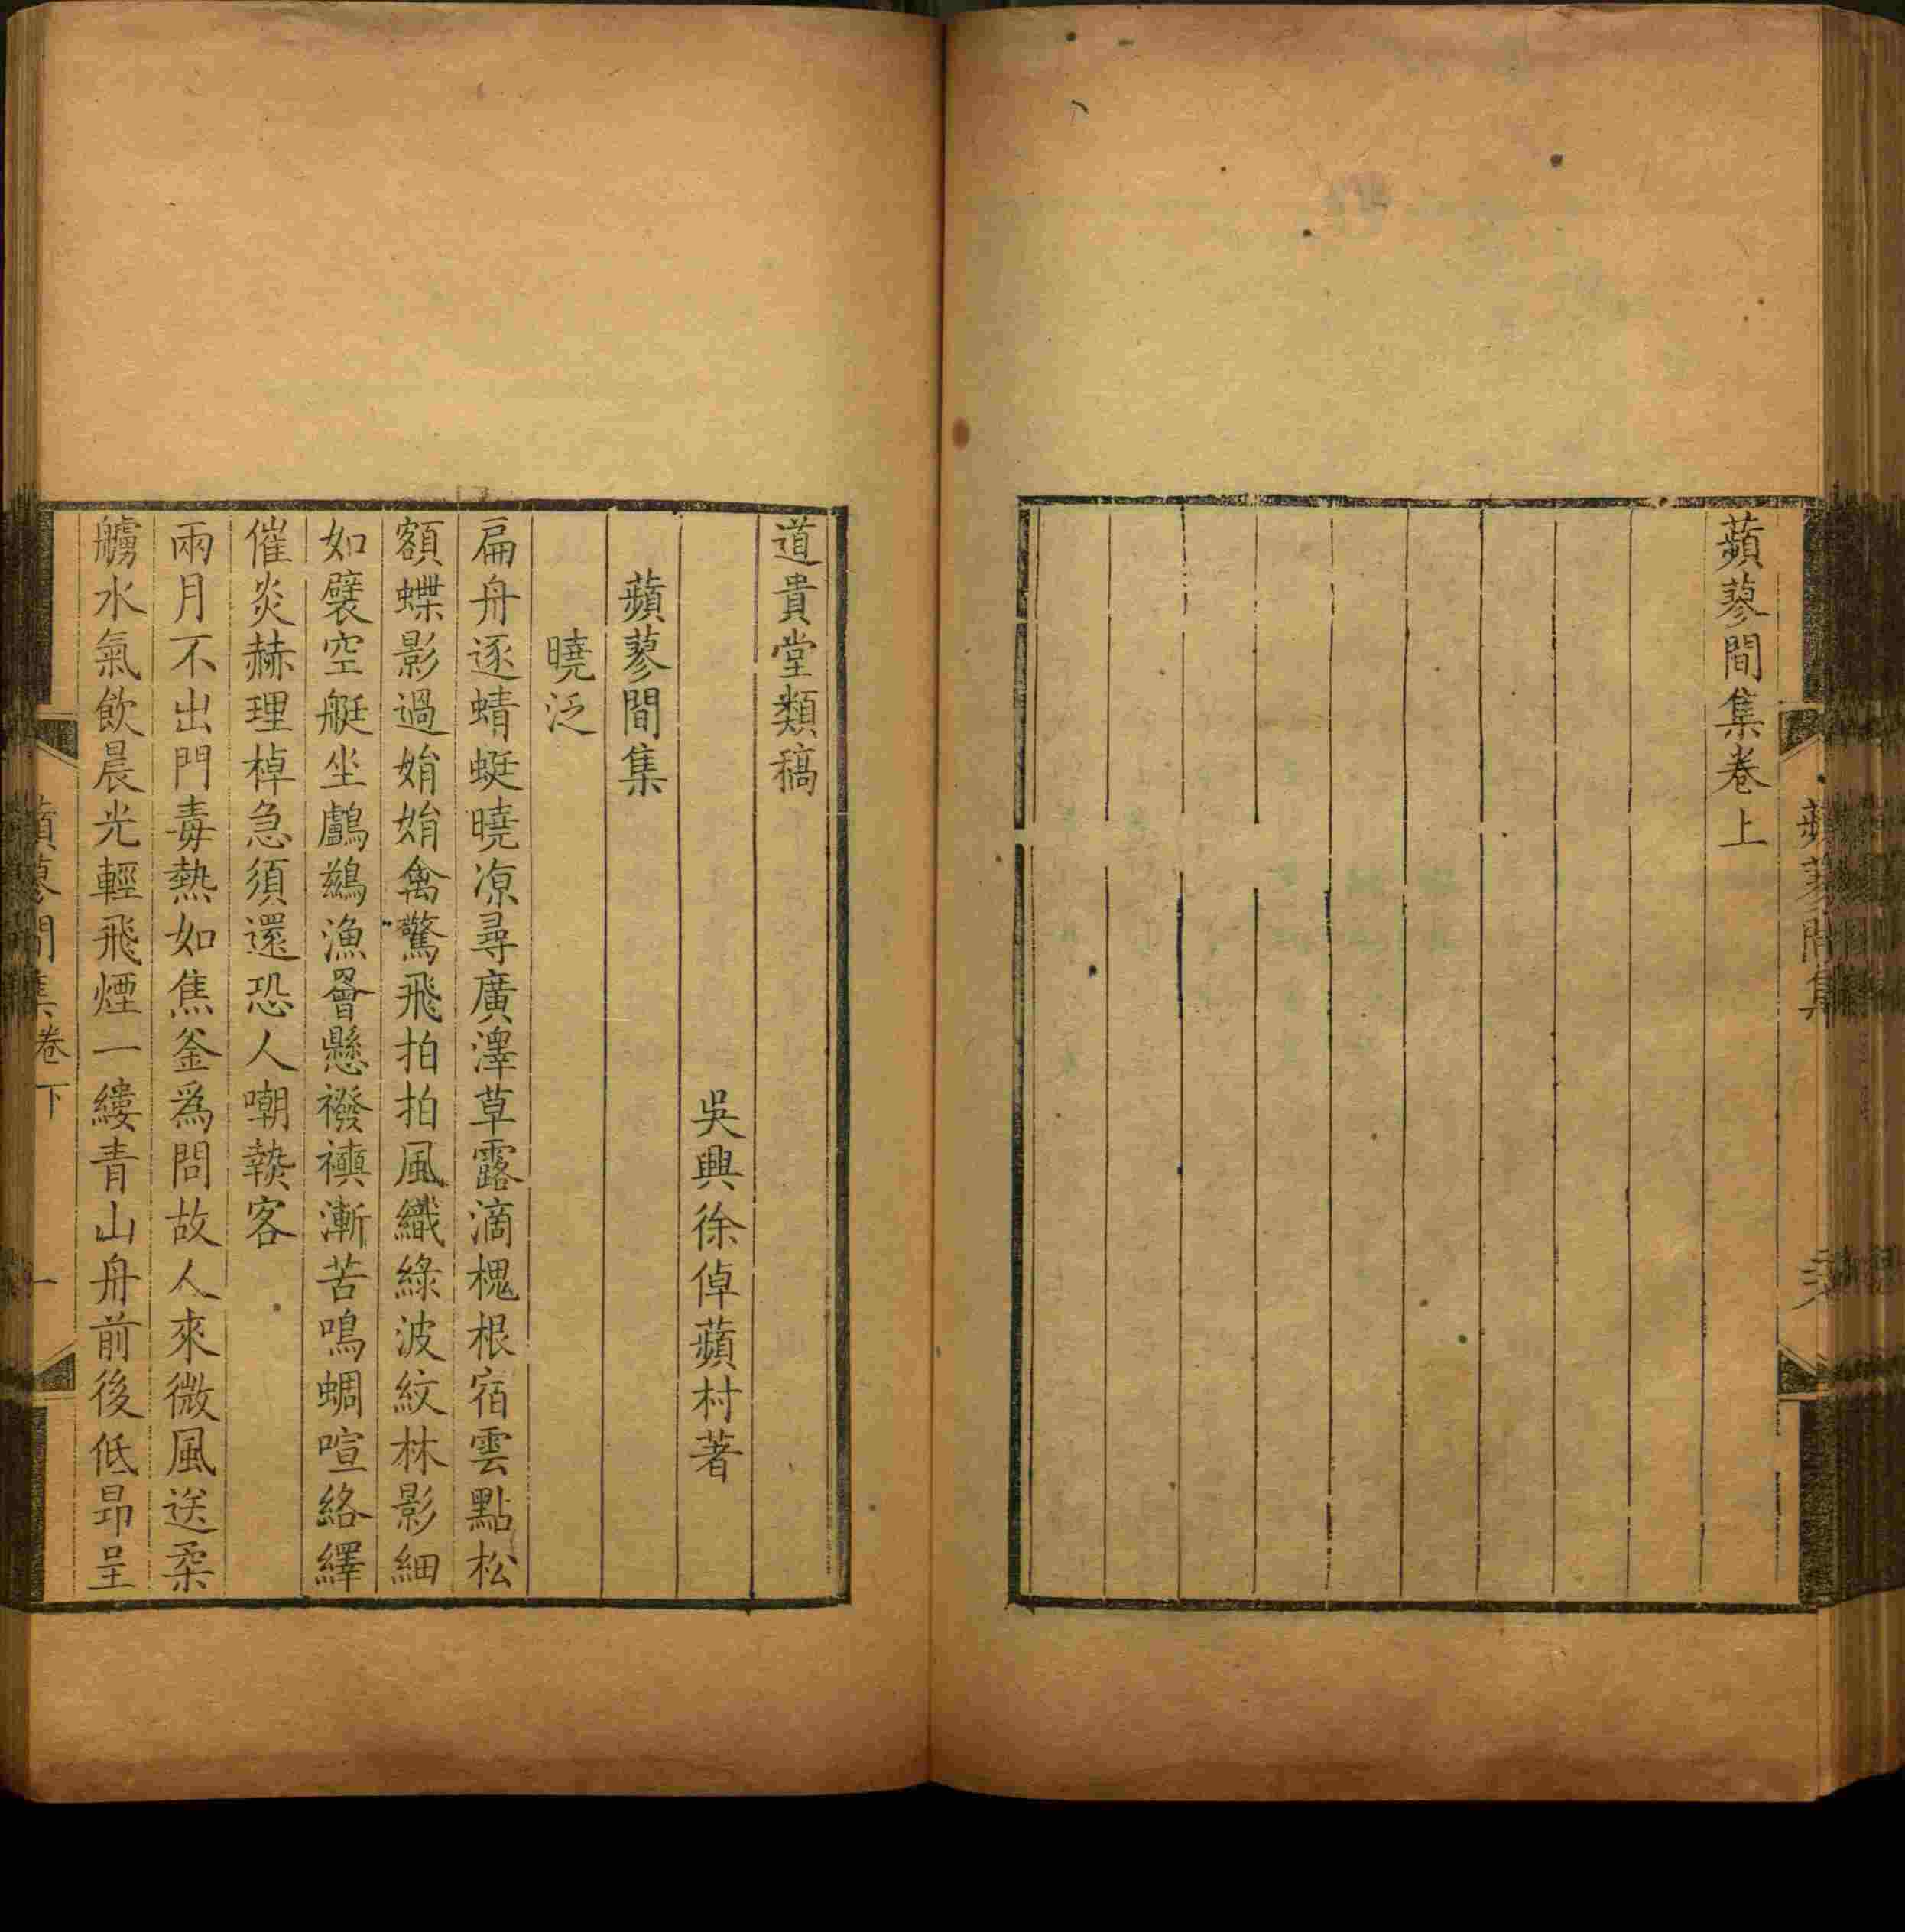 蘋蓼間集
蘋蓼間集卷上
道貴堂類稿
吳興徐倬蘋村著
蘋蓼間集
曉泛
扁舟逐蜻蜓曉凉尋廣澤草露滴槐根宿雲點松
額蝶影過娟娟禽驚飛拍拍風織綠波紋林影細
如襞空艇坐鸕鷀漁罾懸襏襫漸苦鳴蜩喧絡繹
催炎赫理棹急須還恐人嘲褦客
兩月不出門毒熱如焦釜爲問故人來微風送柔
艣水氣飲晨光輕飛煙一縷青山舟前後低昂呈
蘋蓼間集卷下
一